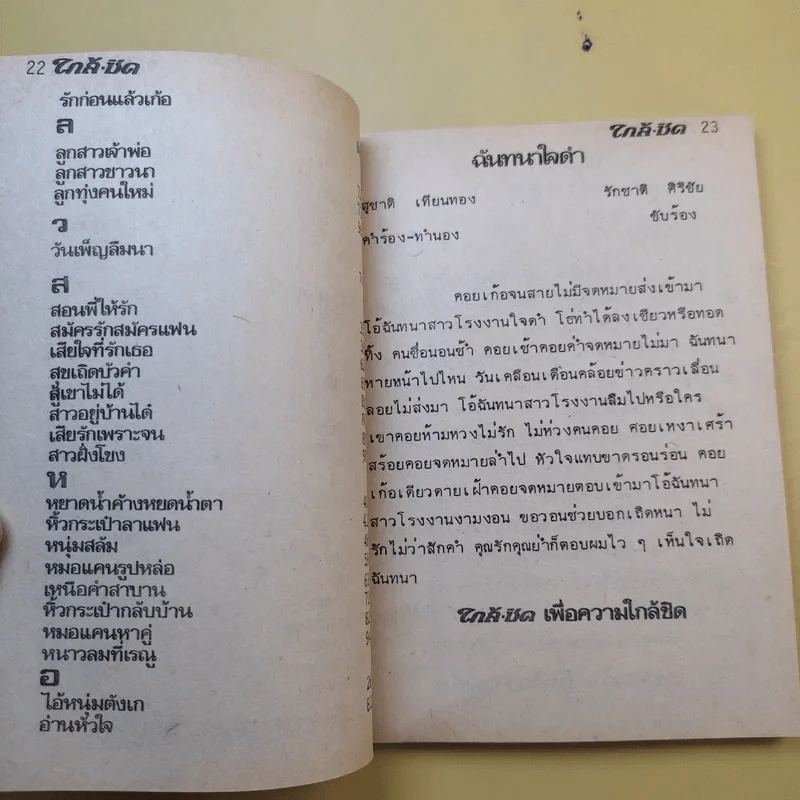 22 ใกล้·ชิด
รักก่อนแล้วเก้อ
ล
ลูกสาวเจ้าพ่อ
ลูกสาวชาวนา
ลูกทุ่งคนใหม่
ว
วันเพ็ญลืมนา
ส
สอนพี่ให้รัก
สมัครรักสมัครแฟน
เสียใจที่รักเธอ
สุขเถิดบัวคำ
สู่เขาไม่ได้
สาวอยู่บ้านได๋
เสียรักเพราะจน
สาวฝั่งโขง
ห
หยาดน้ำค้างหยดน้ำตา
หิ้วกระเป๋าลาแฟน
หนุ่มสลัม
หมอแคนรูปหล่อ
เหนือคำสาบาน
หิ้วกระเป๋ากลับบ้าน
หมอแคนหาคู่
หนาวลมที่เรณู
อ
ไอ้หนุ่มตังเก
อ่านหัวใจ
ใกล้·ชิด 23
ฉันทนาใจดำ
สุชาติ เทียนทอง รักชาติ ศิริชัย
คำร้อง-ทำนอง ขับร้อง
คอยเก้อจนสายไม่มีจดหมายส่งเข้ามา
โอ้ฉันทนาสาวโรงงานใจดำ โธ่ทำได้ลงเชียวหรือทอด
ทิ้ง คนชื่นอนช้ำ คอยเช้าคอยค่ำจดหมายไม่มา ฉันทนา
หายหน้าไปไหน วันเคลื่อนเดือนคล้อยข่าวคราวเลื่อน
ลอยไม่ส่งมา โอ้ฉันทนาสาวโรงงานลืมไปหรือใคร
เขาคอยห้ามหวงไม่รัก ไม่ห่วงคนคอย ศอยเหงาเศร้า
สร้อยคอยจดหมายล่ำไป หัวใจแทบขาดรอนร่อน คอย
เก้อเดียวดายเฝ้าคอยจดหมายตอบเข้ามาโอ้ฉันทนา
สาวโรงงานงามงอน ขอวอนช่วยบอกเถิดหนา ไม่
รักไม่ว่าสักคำ คุณรักคุณย่ำก็ตอบผมไว ๆ เห็นใจเถิด
ฉันทนา
ใกล้·ชิด เพื่อความใกล้ชิด